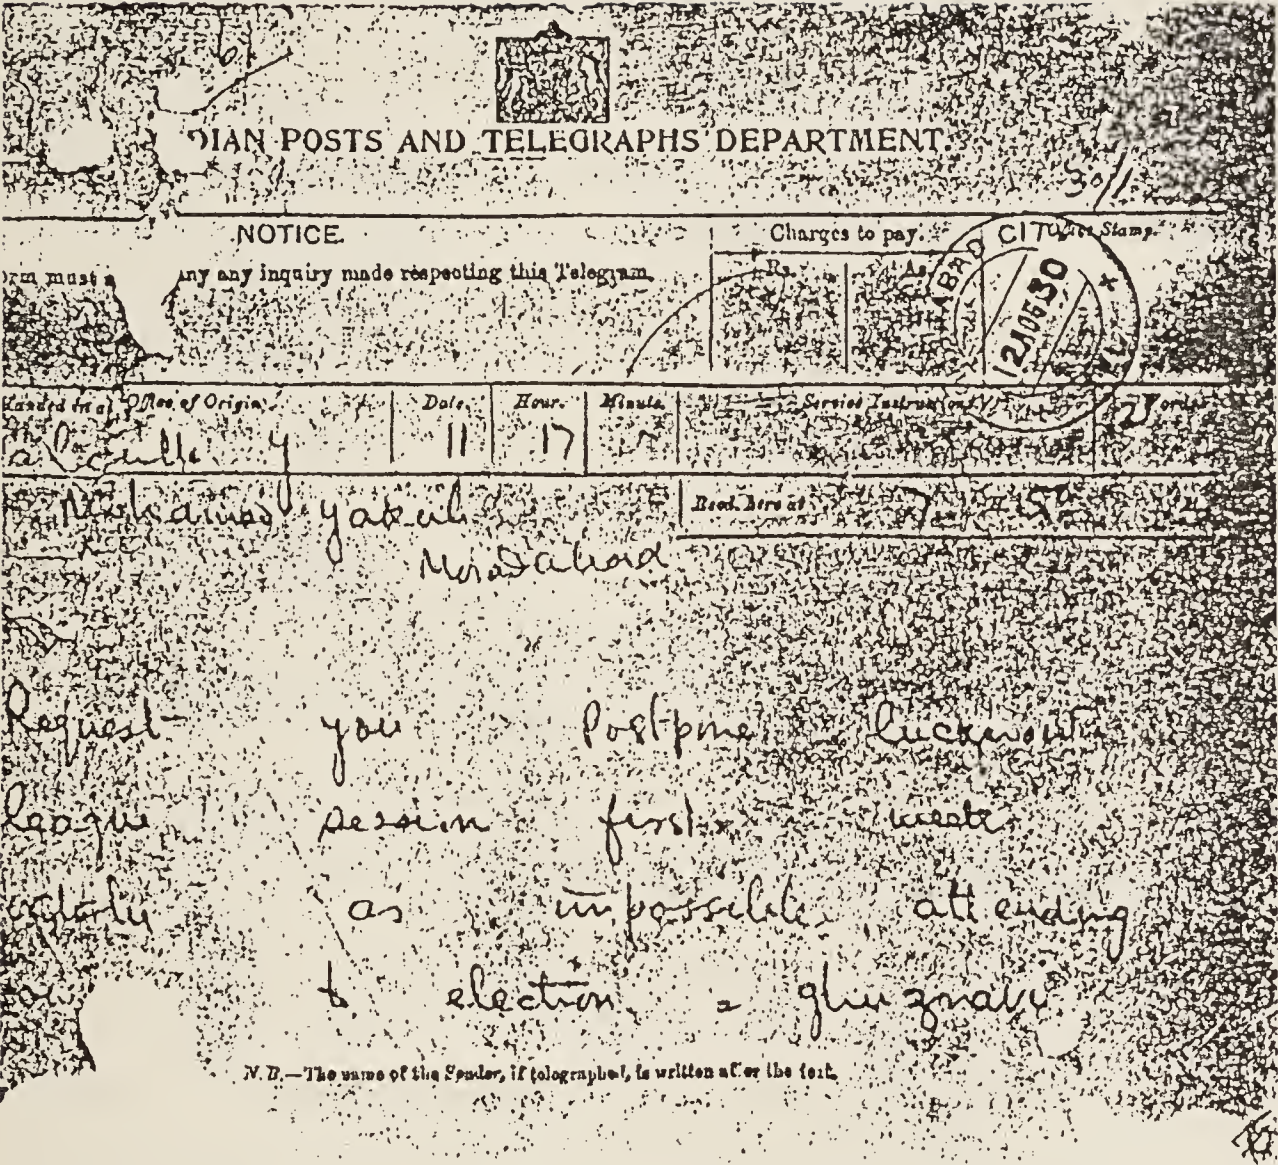 DIAN POSTS AND TELEGRAPHS DEPARTMENT.
NOTICE. Charges to pay. Office Stamp.
rm must any any inquiry made respecting this Telegram.
Rs. As.
ABAD CITY
12 OCT 30
Handed in at Office of Origin. Date. Hour. Minute. Service Instructions Words
Calcutta 11 17
Mohamad yakub Recd. here at
Moradabad
Request you Postpone lucknow
league session first week
october as impossible attending
to election = ghuznavi
N. B.—The name of the Sender, if telegraphed, is written after the text.